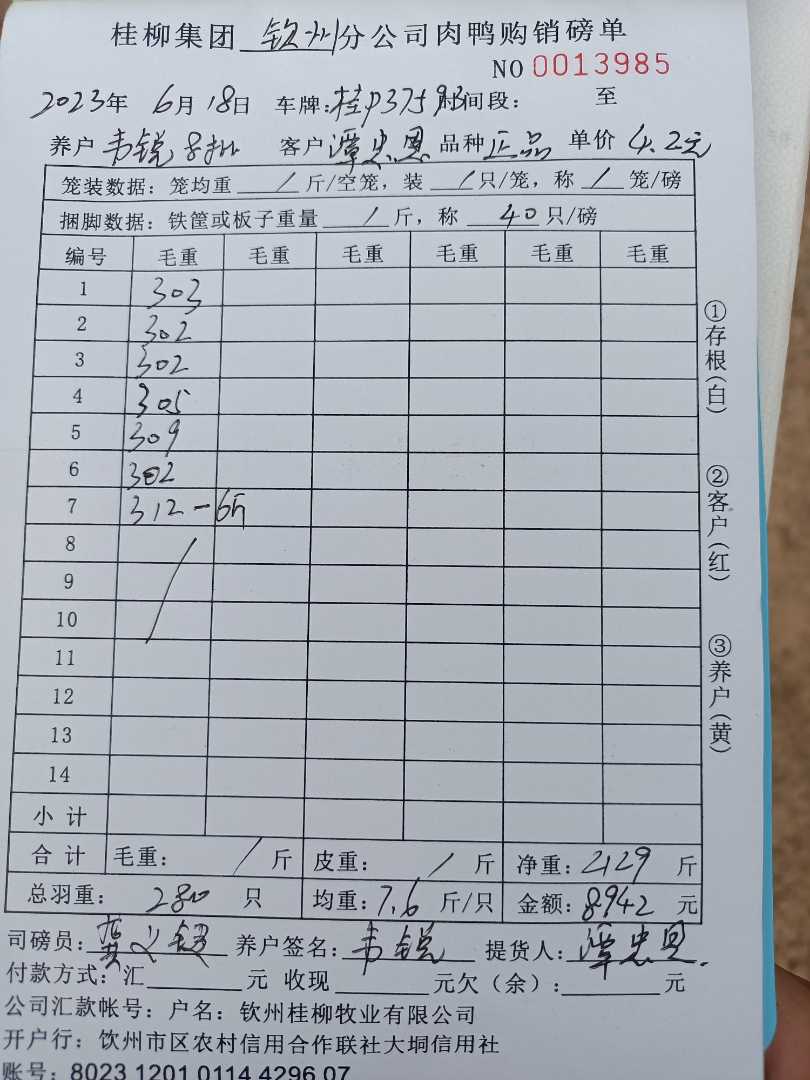 桂柳集团 钦州 分公司肉鸭购销磅单
NO 0013985
2023年 6月 18日 车牌: 桂P37593 时间段: 至
养户 韦锐8批 客户 谭忠恩 品种 正品 单价 4.2元
笼装数据: 笼均重 / 斤/空笼, 装 / 只/笼, 称 / 笼/磅
捆脚数据: 铁筐或板子重量 / 斤, 称 40 只/磅
编号 毛重 毛重 毛重 毛重 毛重 毛重
1 303
2 302
3 302
4 305
5 309
6 302
7 312-6斤
8
9
10
11
12
13
14
小计
合计 毛重: / 斤 皮重: / 斤 净重: 2129 斤
总羽重: 280 只 均重: 7.6 斤/只 金额: 8942 元
司磅员: 养户签名: 韦锐 提货人: 谭忠恩.
付款方式: 汇 元 收现 元欠(余): 元
公司汇款帐号: 户名: 钦州桂柳牧业有限公司
开户行: 饮州市区农村信用合作联社大垌信用社
账号: 8023 1201 0114 4296 07
①存根(白)
②客户(红)
③养户(黄)